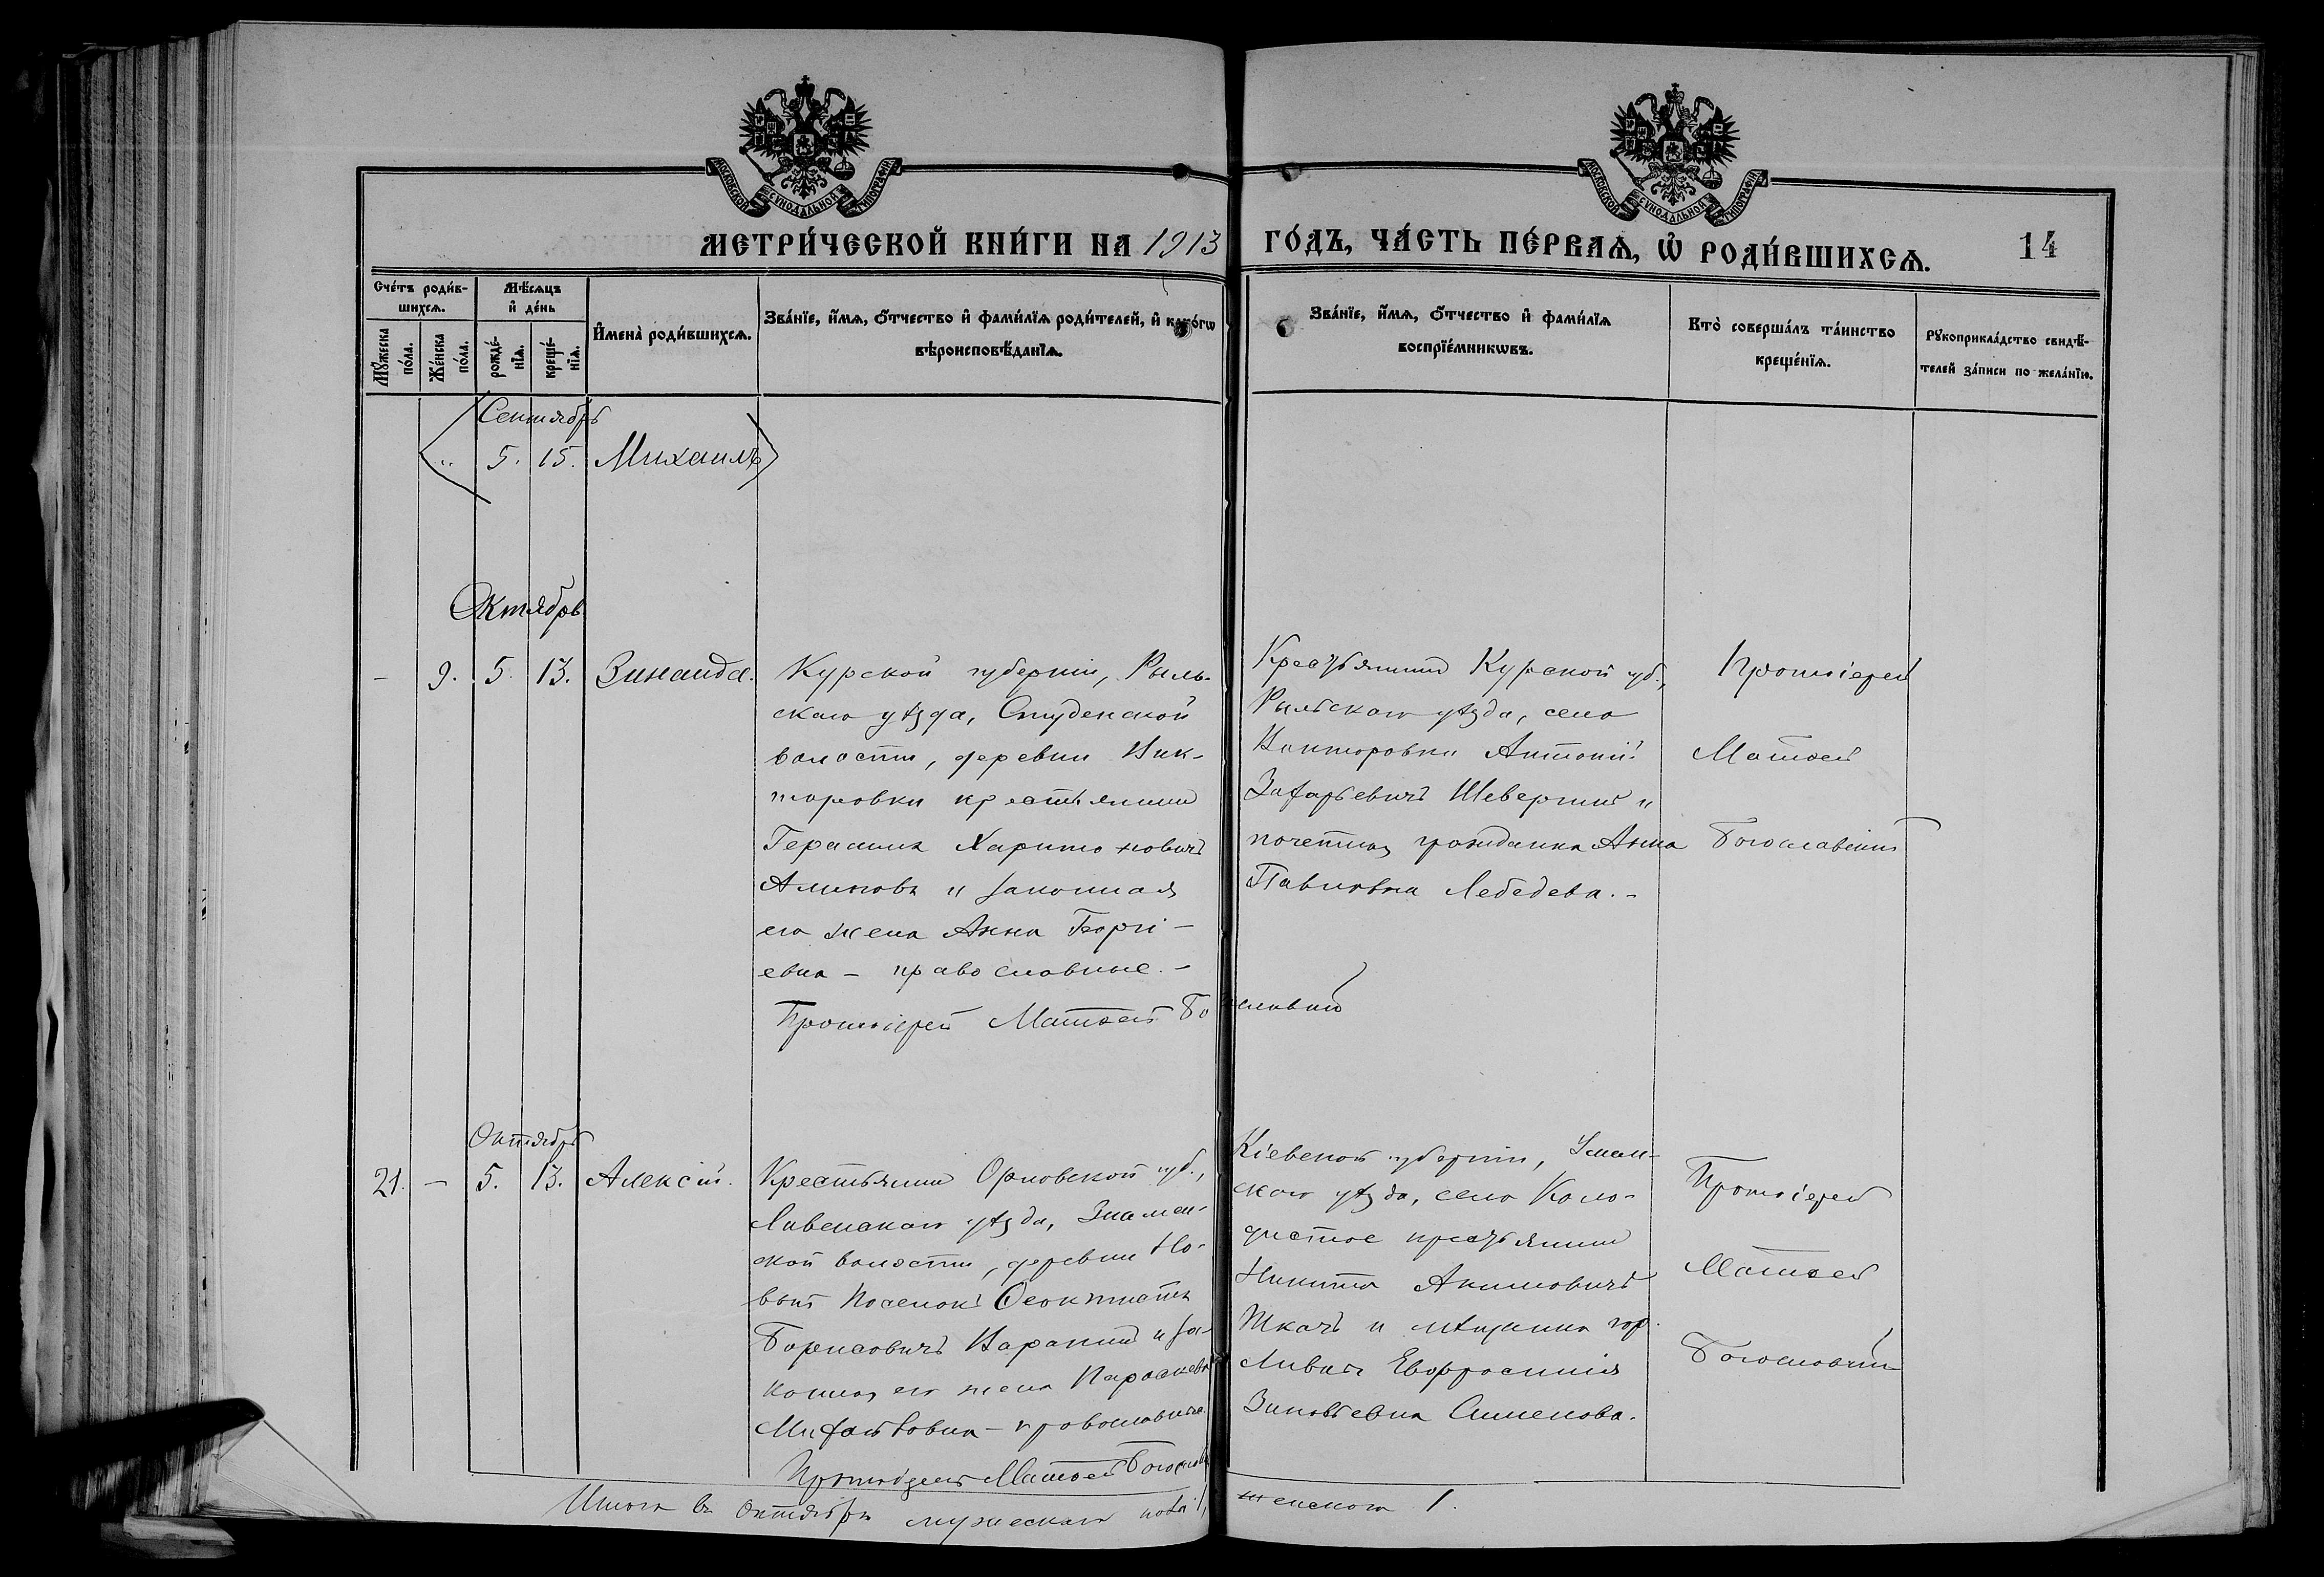 МОСКОВСКОЙ СУНОДАЛЬНОЙ ТИПОГРАФІИ
МОСКОВСКОЙ СУНОДАЛЬНОЙ ТИПОГРАФІИ
МЕТРИ́ЧЕСКОЙ КНИ́ГИ НА 1913 ГО́ДЪ, ЧА́СТЬ ПЕ́РВАѦ, Ѡ РОДИ́ВШИХСѦ. 14
Сче́тъ роди́в-
шихсѧ.
Мꙋ́жеска
по́ла.
Же́нска
по́ла.
Мѣ́сѧцъ
и҆ де́нь
рожде́-
нїѧ.
креще́-
нїѧ.
И҆мена̀ роди́вшихсѧ.
Зва́нїе, и҆́мѧ, ѻ҆́тчество и҆ фами́лїѧ роди́телей, и҆ како́гѡ
вѣроисповѣ́данїѧ.
Зва́нїе, и҆́мѧ, ѻ҆́тчество и҆ фами́лїѧ
воспрїе́мникѡвъ.
Кто̀ соверша́лъ та́инство
креще́нїѧ.
Рꙋкоприкла́дство свидѣ́-
телей за́писи по жела́нїю.
Сентябрь
„ 5. 15. Михаилъ
Октябрь
- 9. 5. 13. Зинаида.
Курской губерніи, Рыль-
скаго уѣзда, Студенской
волости, деревни Вик-
торовки крестьянинъ
Герасимъ Харитоновичъ
Алимовъ и законная
его жена Анна Георгі-
евна – православные. -
Протоіерей Матѳей Богословскій
Крестьянинъ Курской губ.,
Рыльскаго уѣзда, села
Викторовки Антоній
Захарьевичъ Шеверинъ и
почетная гражданка Анна
Павловна Лебедева. -
Протоіерей
Матѳей
Богословскій
Октябрь
21. - 5. 13. Алексій.
Крестьянинъ Орловской губ.,
Ливенскаго уѣзда, Знамен-
ской волости, деревни Но-
вый Поселокъ Ѳеоктистъ
Борисовичъ Каракинъ и за-
конная его жена Параскева
Михайловна – православные.
Протоіерей Матѳей Богословскій
Кіевской губерніи, Уман-
скаго уѣзда, села Коло-
дистое крестьянинъ
Никита Акимовичъ
Ткачъ и мѣщанка гор.
Ливны Евфросинія
Зиновьевна Симонова.
Протоіерей
Матѳей
Богословскій
Итого въ Октябрѣ мужескаго пола 1, женскаго 1.